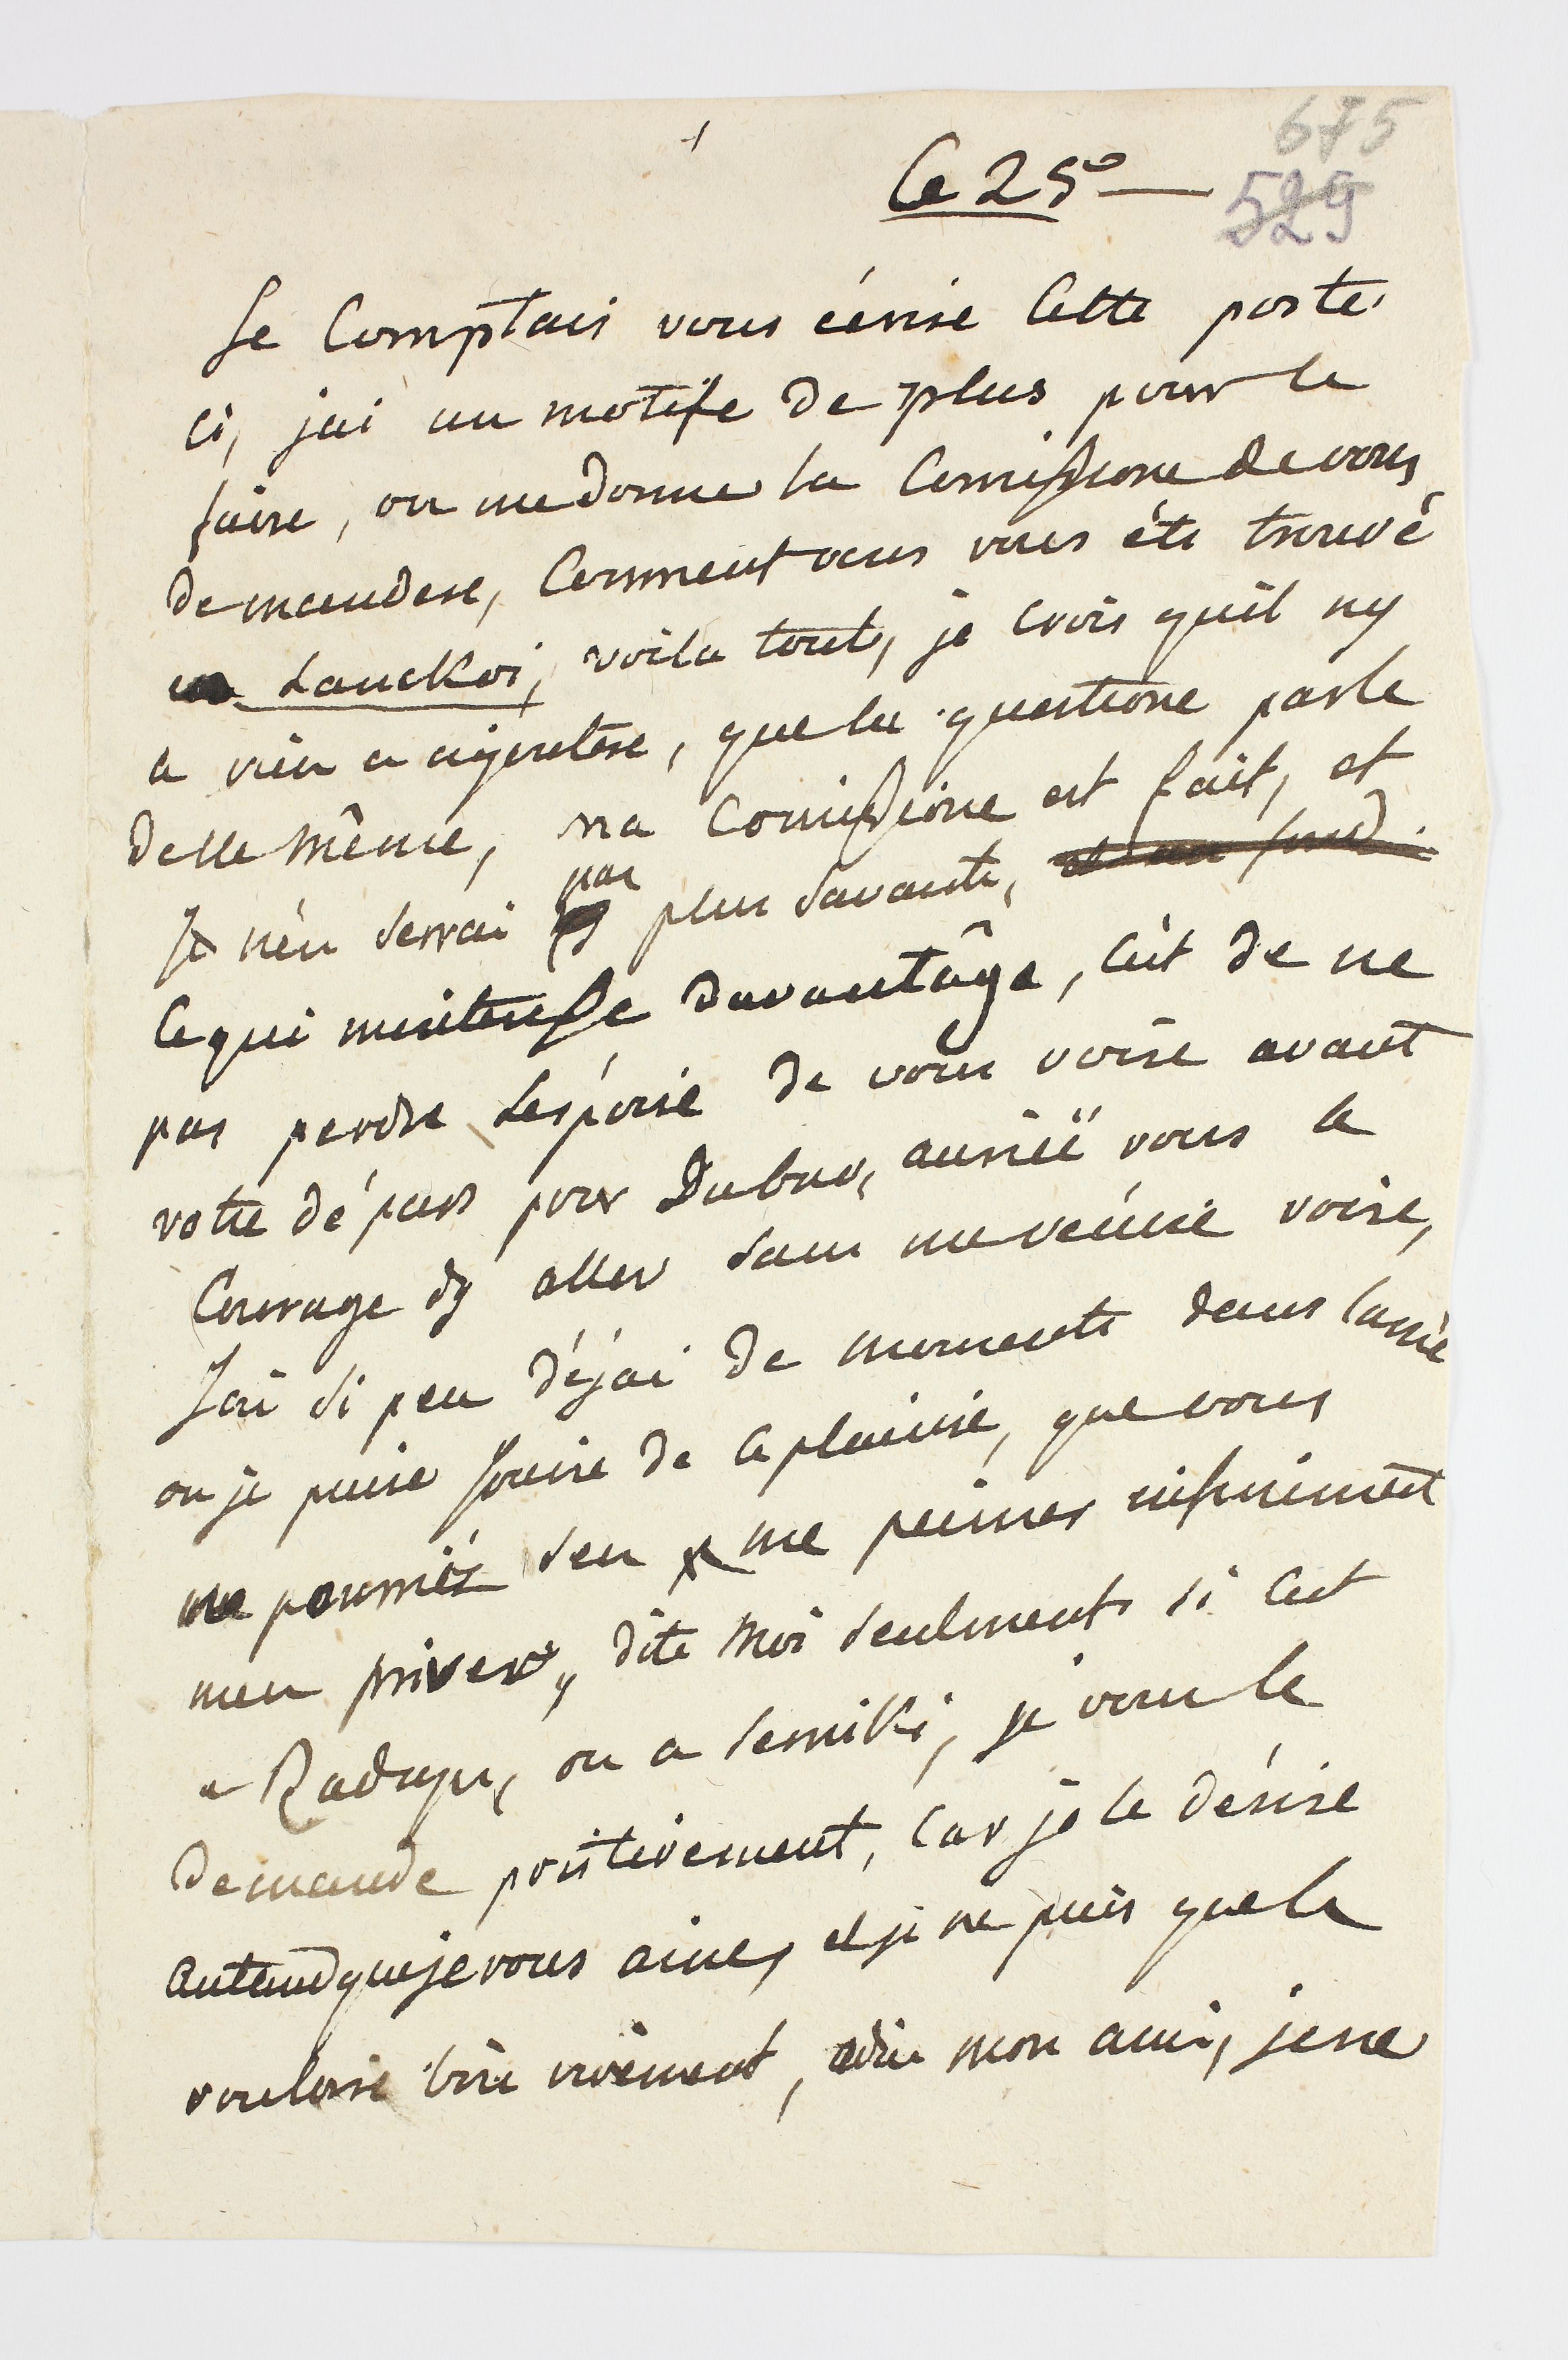 675
Ce 25e —
529
Je Comptais vous écrire Cette poste
ci, jai un motife de plus pour le
faire, on me donne la Comissione de vous
demandere, Comment vous vous éte trouvé
Lanckoi, voila tout, je crois quil ny
a rien a ajoutere, que la questione parle
delle même, ma Comissione est fait, et
Je nén serrai pas plus savante,
Ce qui minteresse davantâge, cést de ne
pas perdre lespoire de vous voire avant
votre dépars pour Dubno, auriéz vous le
Courage dy aller sans me vénire voire,
Jai si peu déjai de moments dans lanné
ou je puise Jouire de ce plaisire, que vous
me pourriéz sen me peiner infiniment
men privere, dite moi seulment si cest
a Radzyn, ou a Serniki, je vous le
demande positivement, Car je le désire
autand que je vous aime, et je ne puis que le
vouloire bien vivement, adieu mon ami, je ne